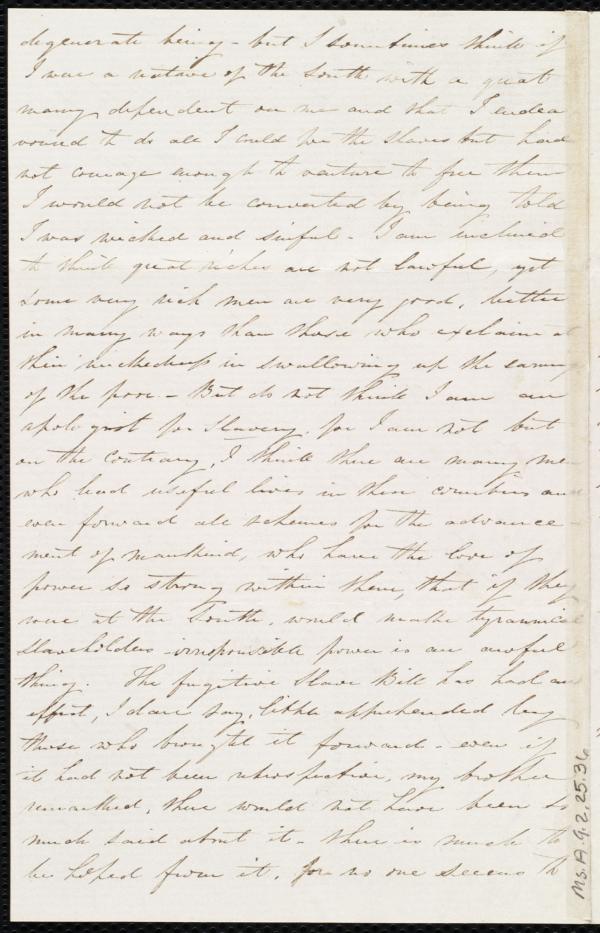 degenerate being - but I sometimes think if
I was a native of the South with a great
many dependent on me and that I endea
voured to do all I could for the slaves but had
not courage enough to venture to free them
I would not be converted by being told
I was wicked and sinful - I am inclined
to think great riches are not lawful, yet
some very rich men are very good, better
in many ways than those who exclaim at
their wickedness in swallowing up the earnings
of the poor. - But do not think I am an
apologist for Slavery, for I am not but
on the contrary, I think there are many men
who lead useful lives in their countries and
even forward all schemes for the advance-
ment of mankind, who have the love of
power so strong within them, that if they
were at the South, would make tyrannical
slaveholders - irresponsible power is an awful
thing. The fugitive Slave Bill has had an
effect, I dare say, little apprehended by
those who brought it forward - even if
it had not been retrospective, my brother
remarked, there would not have been so
much said about it - there is much to
be hoped from it, for no one seems to
Ms. A. 9. 2. 25. 36